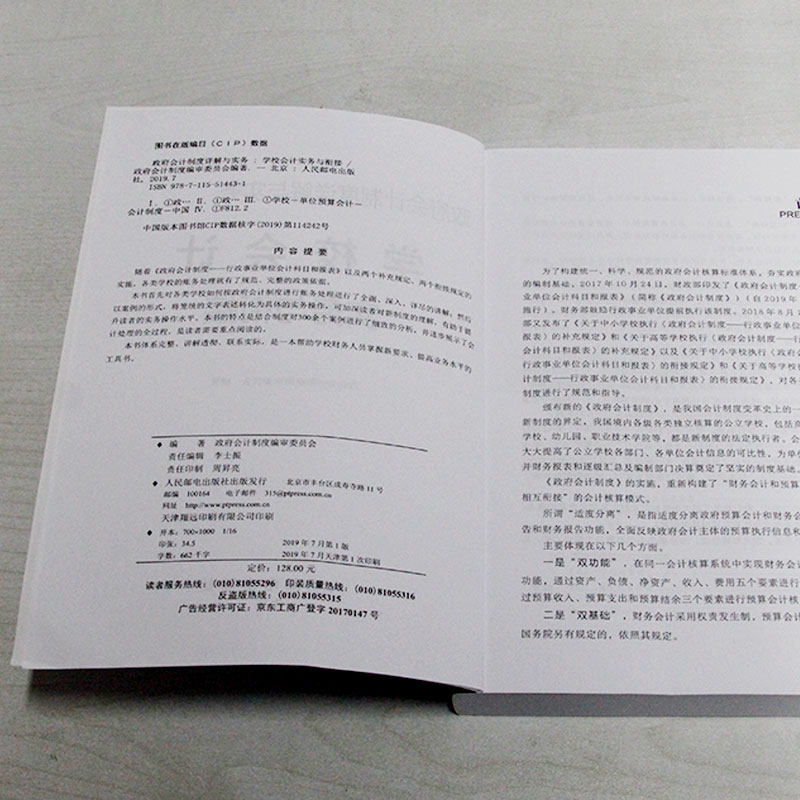 图书在版编目（CIP）数据
政府会计制度详解与实务：学校会计实务与衔接／
政府会计制度编审委员会编著. — 北京：人民邮电出版
社，2019.7
ISBN 978-7-115-51443-1
Ⅰ. ①政… Ⅱ. ①政… Ⅲ. ①学校－单位预算会计－
会计制度－中国 Ⅳ. ①F812.2
中国版本图书馆CIP数据核字(2019)第114242号
内 容 提 要
随着《政府会计制度——行政事业单位会计科目和报表》以及两个补充规定、两个衔接规定的
实施，各类学校的账务处理就有了规范、完整的政策依据。
本书首先对各类学校如何按政府会计制度进行账务处理进行了全面、深入、详尽的讲解，然后
以案例的形式，将笼统的文字表述转化为具体的实务操作，可加深读者对新制度的理解，有助于提
升读者的实务操作水平。本书的特点是结合制度对300余个案例进行了细致的分析，并逐步展示了会
计处理的全过程，是读者需要重点阅读的。
本书体系完整、讲解透彻、联系实际，是一本帮助学校财务人员掌握新要求、提高业务水平的
工具书。
◆ 编 著 政府会计制度编审委员会
责任编辑 李士振
责任印制 周昇亮
◆ 人民邮电出版社出版发行 北京市丰台区成寿寺路11号
邮编 100164 电子邮件 315@ptpress.com.cn
网址 http://www.ptpress.com.cn
天津翔远印刷有限公司印刷
◆ 开本：700×1000 1/16
印张：34.5 2019年7月第1版
字数：662千字 2019年7月天津第1次印刷
定价：128.00元
读者服务热线：(010)81055296 印装质量热线：(010)81055316
反盗版热线：(010)81055315
广告经营许可证：京东工商广登字20170147号
PRE
为了构建统一、科学、规范的政府会计核算标准体系，夯实政府
的编制基础，2017年10月24日，财政部印发了《政府会计制度—
业单位会计科目和报表》（简称《政府会计制度》）（自2019年
施行）。财务部鼓励行政事业单位提前执行该制度。2018年8月
部又发布了《关于中小学校执行〈政府会计制度——行政事业单位
报表〉的补充规定》和《关于高等学校执行〈政府会计制度——
会计科目和报表〉的补充规定》以及《关于中小学校执行〈政府会
行政事业单位会计科目和报表〉的衔接规定》和《关于高等学校
计制度——行政事业单位会计科目和报表〉的衔接规定》，对各
制度进行了规范和指导。
颁布新的《政府会计制度》，是我国会计制度变革史上的一
新制度的界定，我国境内各级各类独立核算的公立学校，包括高
学校、幼儿园、职业技术学院等，都是新制度的法定执行者。会
大大提高了公立学校各部门、各单位会计信息的可比性，为单
并财务报表和逐级汇总及编制部门决算奠定了坚实的制度基础。
《政府会计制度》的实施，重新构建了“财务会计和预算
相互衔接”的会计核算模式。
所谓“适度分离”，是指适度分离政府预算会计和财务会
告和财务报告功能，全面反映政府会计主体的预算执行信息和
主要体现在以下几个方面。
一是“双功能”，在同一会计核算系统中实现财务会
功能，通过资产、负债、净资产、收入、费用五个要素进行
过预算收入、预算支出和预算结余三个要素进行预算会计核
二是“双基础”，财务会计采用权责发生制，预算会计
国务院另有规定的，依照其规定。